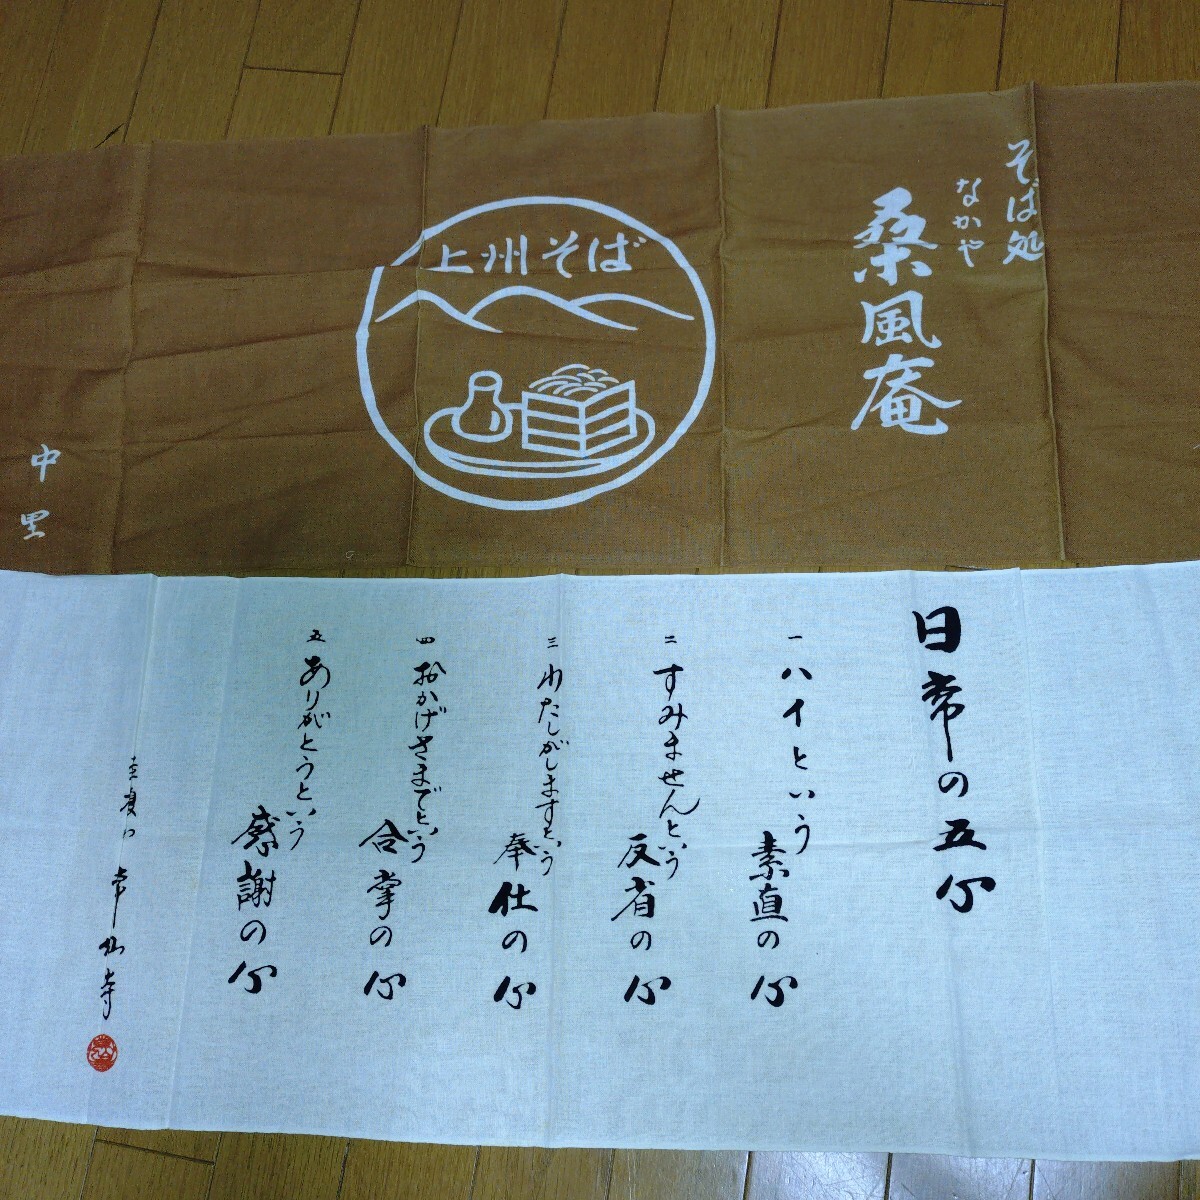 そば処
なかや
桑風庵
上州そば
中里
日常の五心
一 ハイという
素直の心
二 すみませんという
反省の心
三 わたしがしますという
奉仕の心
四 おかげさまでという
合掌の心
五 ありがとうという
感謝の心
常仙寺